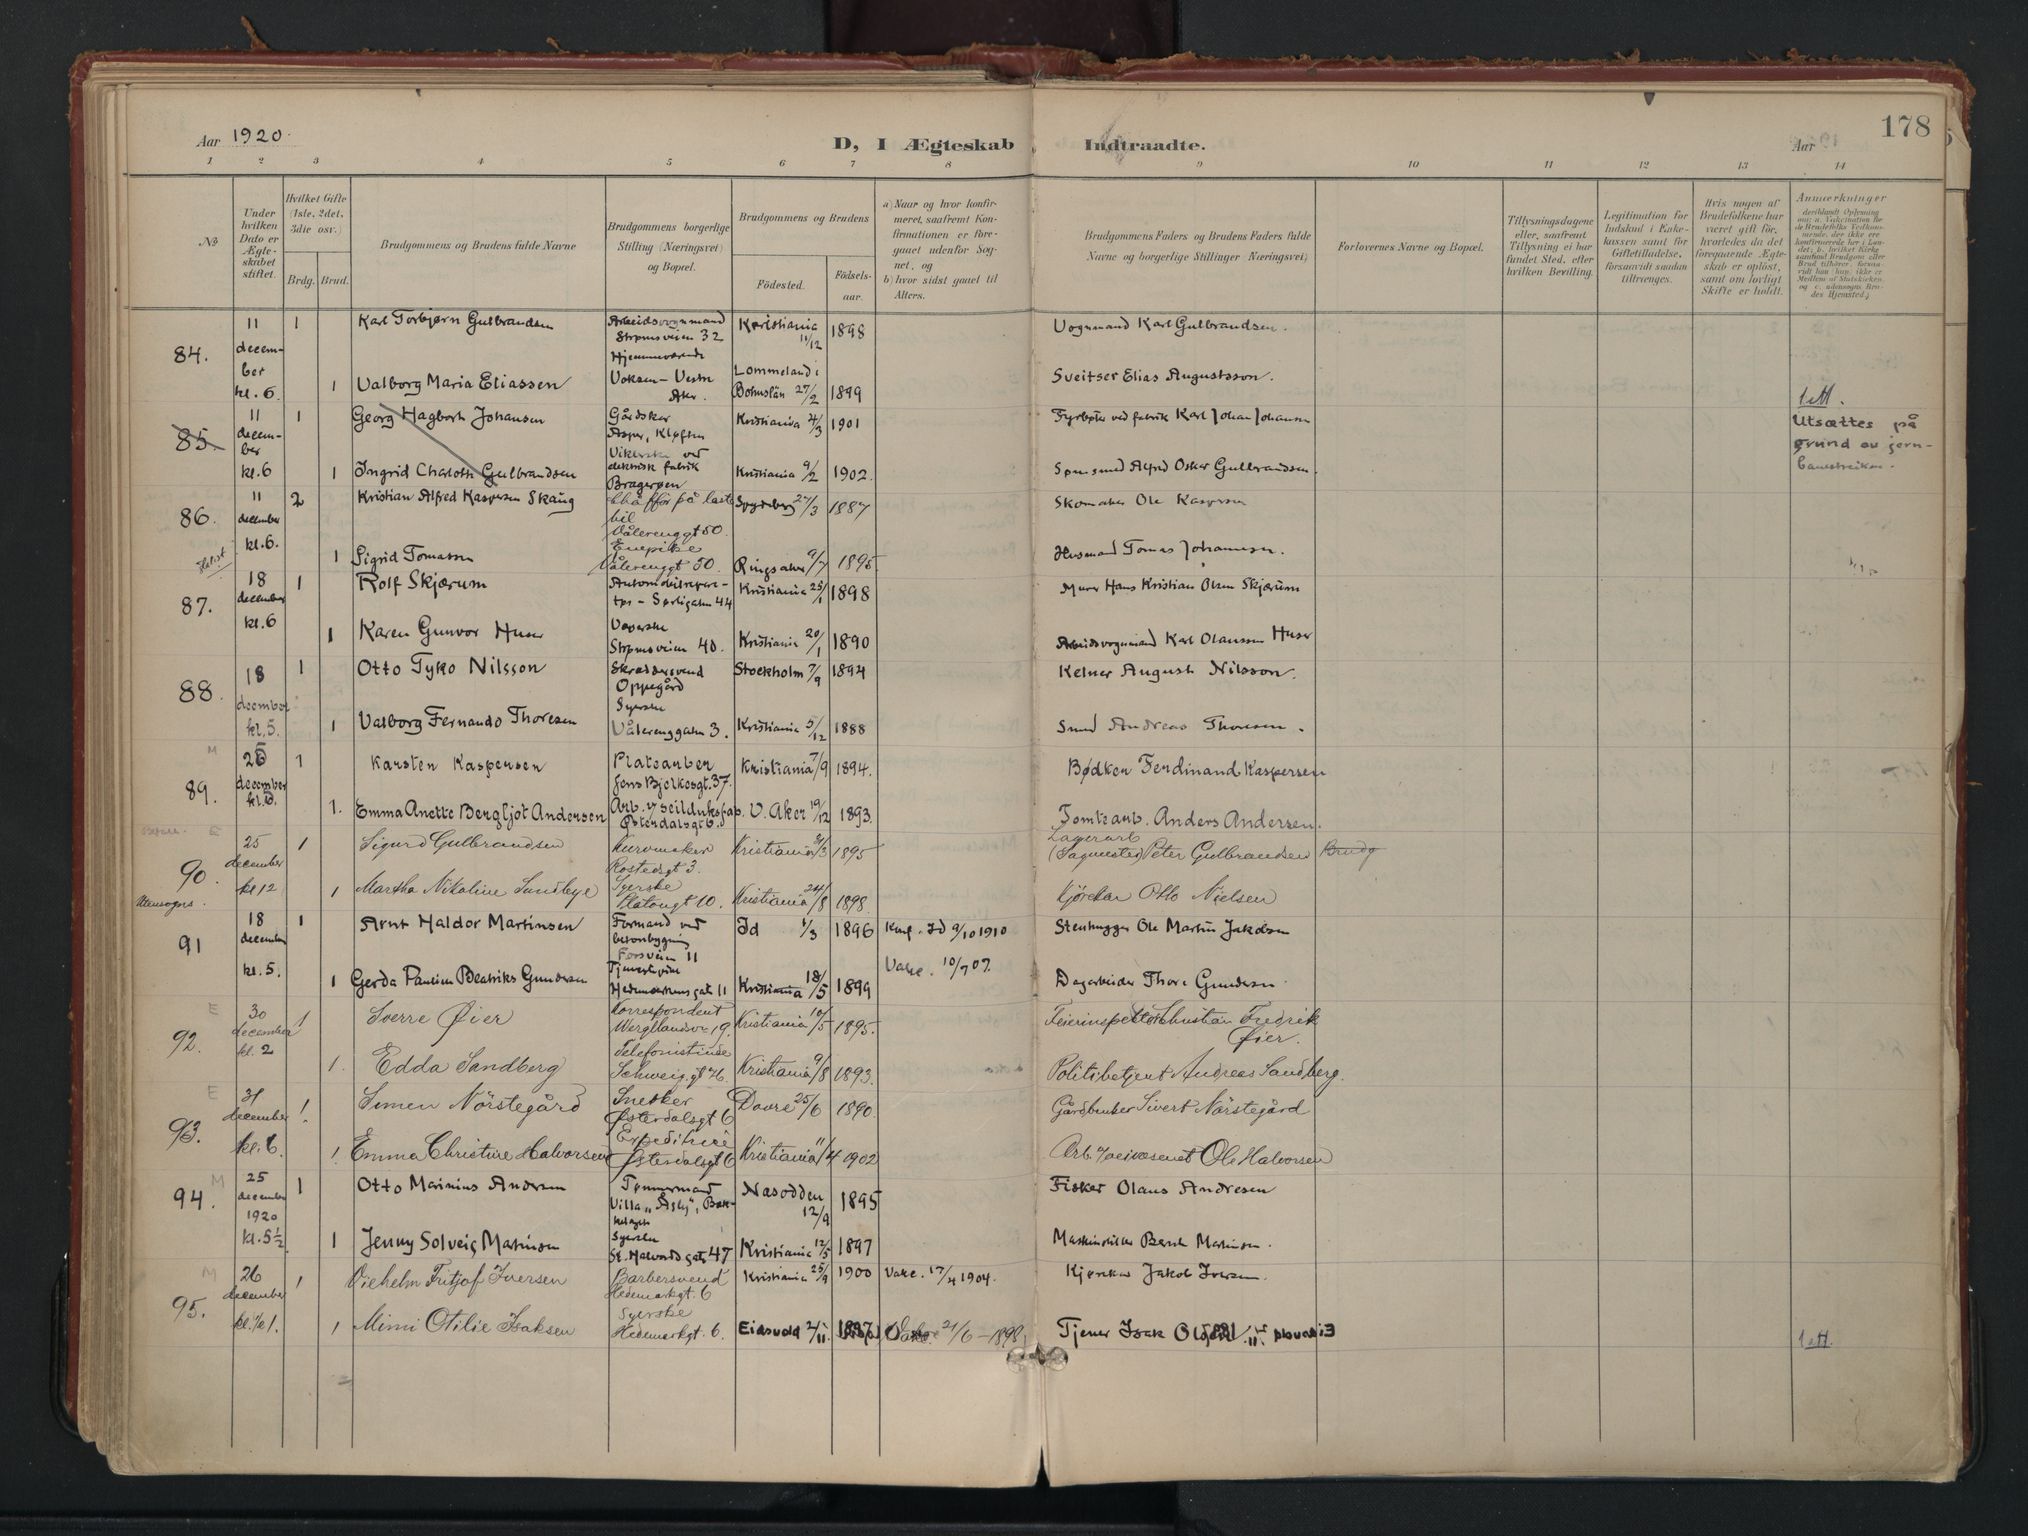 Aar 1920.
D, I Ægteskab Indtraadte.
Aar
178
1 2 3 4 5 6 7 8 9 10 11 12 13 14
No
Under hvilken Dato er Ægteskabet stiftet.
Hvilket Gifte (1ste, 2det, 3die osv.)
Brdg. Brud.
Brudgommens og Brudens fulde Navne
Brudgommens borgerlige Stilling (Næringsvei) og Bopæl.
Brudgommens og Brudens
Födested.
Födselsaar.
a) Naar og hvor konfirmeret, saafremt Konfirmationen er foregaaet udenfor Sognet, og
b) hvor sidst gaaet til Alters.
Brudgommens Faders og Brudens Faders fulde Navne og borgerlige Stillinger (Næringsvei)
Forlovernes Navne og Bopæl.
Tillysningsdagene eller, saafremt Tillysning ei har fundet Sted, efter hvilken Bevilling.
Legitimation for Indskud i Enkekassen samt for Giftetilladelse, forsaavidt saadan tiltrænges.
Hvis nogen af Brudefolkene har været gift för, hvorledes da det foregaaende Ægteskab er oplöst, samt om lovligt Skifte er holdt.
Anmærkninger
84. 11 december kl. 6. 1 Karl Torbjørn Gulbrandsen Arbeidsvognmand Strømsveien 32 Kristiania 11/12 1898 Vognmand Karl Gulbrandsen.
1 Valborg Maria Eliassen Hjemmeværende Voksen - Vestre Aker. Lommeland i Bohuslän 27/2 1899 Sveitser Elias Augustsson.
85. 11 december kl. 6 1 Georg Hagbart Johansen Gårdsker Asper, Kløften Kristiania 4/3 1901 Fyrbøter ved fabrik Karl Johan Johansen Utsættes på grund av jernbanestreiken.
1 Ingrid Charlotte Gulbrandsen Viklerske ved elektrisk fabrik Bragerøen Kristiania 9/2 1902. Alfred Oskar Gulbrandsen.
86. 11 december kl. 6. 2 Kristian Alfred Kaspersen Skaug på lastebil Vålerenggt 50. Spydeberg 27/3 1887 Skomaker Ole Kaspersen
1 Sigrid Tomassen Enepike Vålerenggt 50. Ringsaker 9/7 1895 Husmand Tomas Johannesen.
87. 18 december kl. 6 1 Rolf Skjærum Automobilreparatør - Sørligaten 44 Kristiania 25/1 1898 Murer Hans Kristian Olsen Skjærum
1 Karen Gunvor Huser Væverske Strømsveien 40. Kristiania 20/1 1890 Arbeidsvognmand Karl Olaussen Huser
88. 18 december kl. 5. 1 Otto Tyko Nilsson Skræddersvend Oppegård Stockholm 7/9 1894 Kelner August Nilsson.
1 Valborg Fernando Thoresen Syerske Vålerenggaten 3. Kristiania 5/12 1888 Smed Andreas Thoresen.
M
89. 26 december kl. 5. 1 Karsten Kaspersen Platearber Jens Bjelkesgt. 37. Kristiania 7/9 1894. Bødker Ferdinand Kaspersen
1. Emma Anette Bergljot Andersen Arb. v/ seildukfap. Østerdalsgt 6. V. Aker 19/12 1893. Tomtearb. Anders Andersen.
E
90. 25 december kl 12 1 Sigurd Gulbrandsen Kurvmaker Rostedsgt 3. Kristiania 3/3 1895 Lagerarb (Sagmester) Peter Gulbrandsen Brudg
Utensogns. 1 Martha Nikoline Sandbye Syerske Platougt 10. Kristiania 24/8 1898. Kjörekar Otto Nielsen
91 18 december kl. 5. 1 Arnt Haldor Martinsen Formand ved betonbygning Forsveien 11 Id 1/3 1896 Konf. Id 9/10 1910 Stenhugger Ole Martin Jakobsen
1 Gerda Pauline Beatriks Gundersen Tjenestepike Hedemarkensgate 11 Kristiania 18/5 1899 Vakc. 10/7 07. Dagarbeider Thore Gundersen
E
92. 30 december kl. 2 1 Sverre Øier Korrespondent Werglandsv. 19. Kristiania 10/5 1895. Feierinspektör Christian Fredrik Øier.
1. Edda Sandberg Telefonistinde Schweig.gt 76. Kristiania 9/8 1893. Politibetjent Andreas Sandberg.
E
93. 31 december kl. 6. 1 Simen Nörstegård Snekker Østerdalsgt 6 Dovre 25/6 1890. Gårdbruker Sivert Nörstegård
1 Emma Christine Halvorsen Expeditrice Østerdalsgt 6 Kristiania 11/4 1902 Arb. v/veivæsenet Ole Halvorsen
M
94. 25 december 1920 kl. 5 ½ 1 Otto Marinius Andersen Tømmermand Villa "Åsly", Bækkelaget Næsodden 12/9 1895 Fisker Olaus Andresen
1 Jenny Solveig Martinsen Syerske St. Halvards gate 47 Kristiania 12/5 1897 Maskinstiller Bernt Martinsen.
M
95. 26 december kl. ½ 1. 1 Vilhelm Fritjof Iversen Barbersvend Hedemarkgt. 6 Kristiania 25/9 1900 Vakc. 17/4 1904. Kjørekar Jakob Iversen.
1 Mimi Otilie Isaksen Syerske Hedemarkgt. 6. Eidsvold 2/11 1897 21/6 - 1898. Tjener Isak Olsen
1 att.